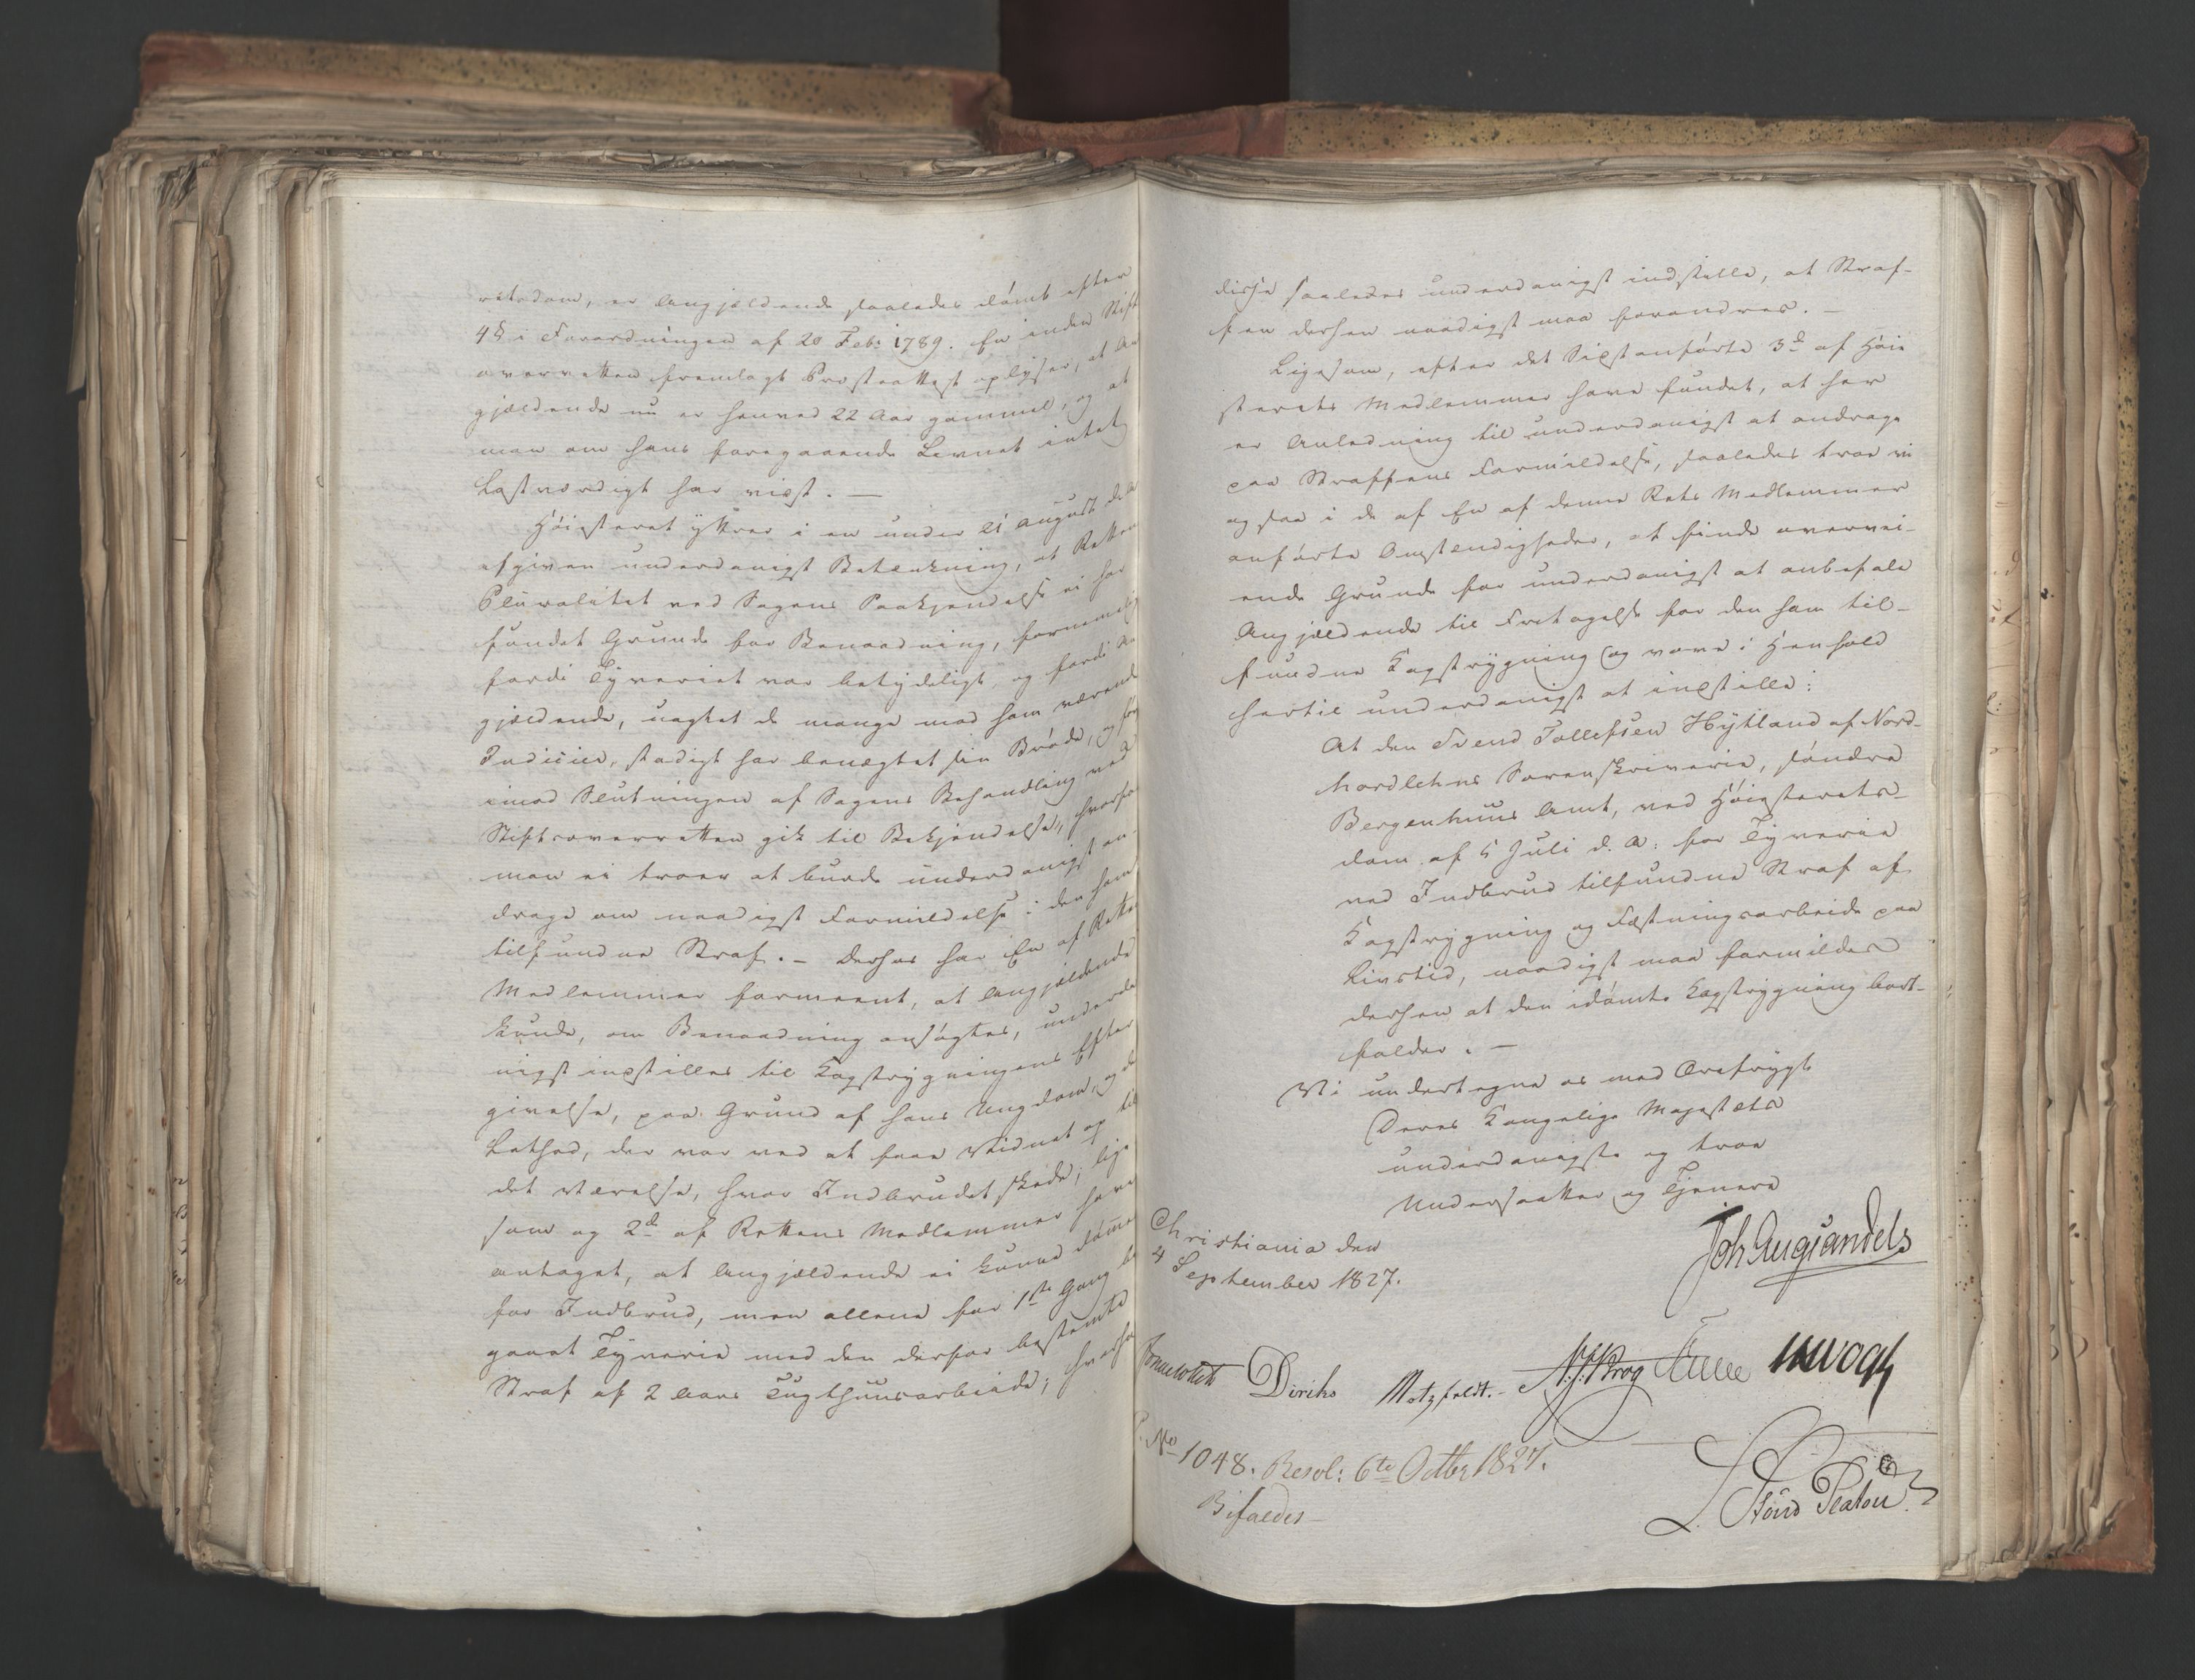 retsdom, er Angjældende saaledes dömt efter
4 § i Forordningen af 20 Feb: 1789. En inden Stift
overretten fremlagt Præsteattest oplyser, at An
gjældende nu er henved 22 Aar gammel, og at
man om hans foregaaende Levnet intet
Lastværdigt har vidst. —
Höiesteret yttrer i en under 21 August d. A
afgiven underdanigst Betænkning, at Rettens
Pluralitet ved Sagens Paakjendelse ei har
fundet Grunde for Benaadning, fornemmelig
fordi Tyveriet var betydeligt, og fordi An
gjældende, uagtet de mange mod ham værende
Indicier, stadigt har benægtet sin Bröde, og först
imod Slutningen af Sagens Behandling ved
Stiftsoverretten gik til Bekjendelse, hvorfor
man ei troer at burde underdanigst an-
drage om naadigst Formildelse i den ham
tilfundne Straf. — Derhos har En af Rettens
Medlemmer formeent, at Angjældende
kunde, om Benaadning ansögtes, underda
nigst indstilles til Kagstrygningens Efter
givelse, paa Grund af hans Ungdom, og den
Lethed, der var ved at faae Vinduet op til
det Værelse, hvor Indbrudet skede; lige
som og 2de af Rettens Medlemmer have
antaget, at Angjældende ei kunde dömmes
for Indbrud, men allene for 1ste Gang be
gaaet Tyverie med den derfor bestemte
Straf af 2 Aars Tugthuusarbeide; hvorfor
disse saaledes underdanigst indstille, at Straf-
fen derhen naadigst maa forandres. —
Ligesom, efter det Sidstanförte 3de af Höie
sterets Medlemmer have fundet, at her
er Anledning til underdanigst at andrage
paa Straffens Formildelse, saaledes troe vi
ogsaa i de af En af denne Rets Medlemmer
anförte Omstændigheder, at finde overvei-
ende Grunde for underdanigst at anbefale
Angjældende til Fritagelse for den ham til-
fundne Kagstrygning og vove i Henhold
hertil underdanigst at indstille:
At den Svend Tollefsen Hytland af Nord-
hordlehns Sorenskriverie, söndre
Bergenhuus Amt, ved Höiesterets-
dom af 5 Juli d. A: for Tyverie
ved Indbrud tilfundne Straf af
Kagstrygning og Fæstningsarbeide paa
Livstid, naadigst maa formildes
derhen at den idömte Kagstrygning bort-
falder. —
Vi undertegne os med Ærefrygt
Deres Kongelige Majestæts
underdanigste og troe
Undersaatter og Tjenere
Christiania den
4 September 1827.
Joh Aug Sandels
Diriks Motzfeldt. — Krog Fasting Vogt
P. No 1048. Resol: 6te Octbr 1827.
Bifaldes —
Stoud Platou